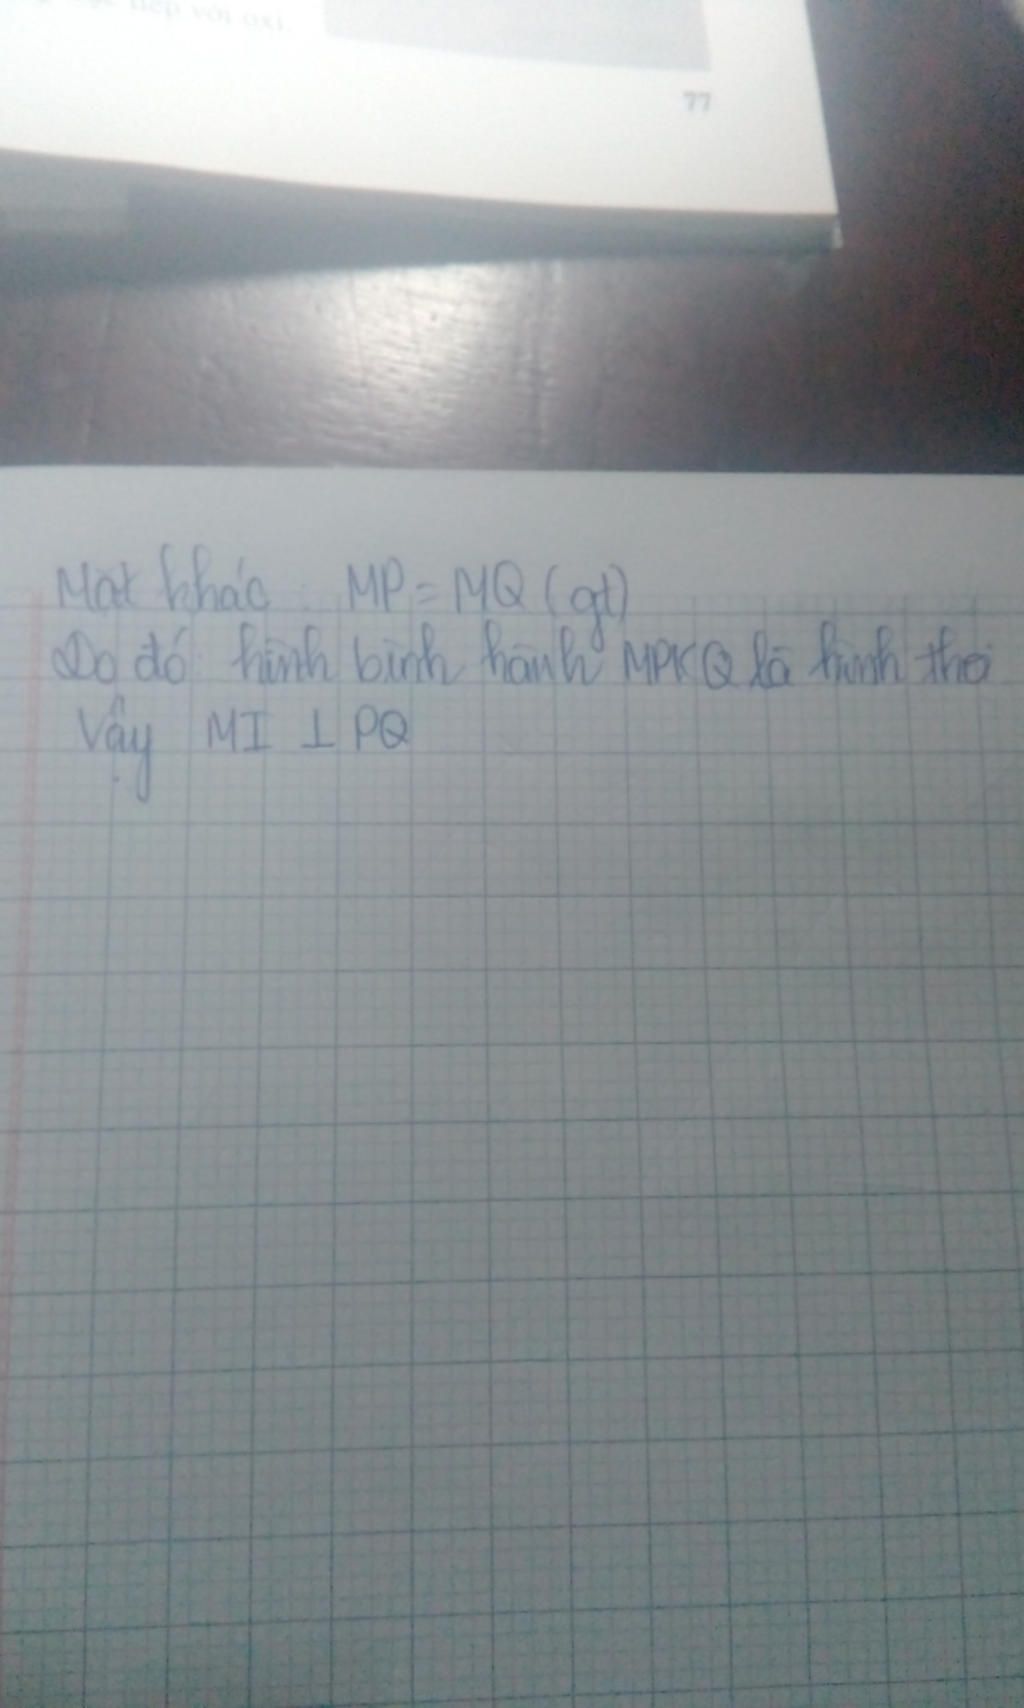 tiếp với oxi
77
Mặt khác : MP = MQ (gt)
Do đó : hình bình hành MPKQ là hình thoi
Vậy MI ⊥ PQ